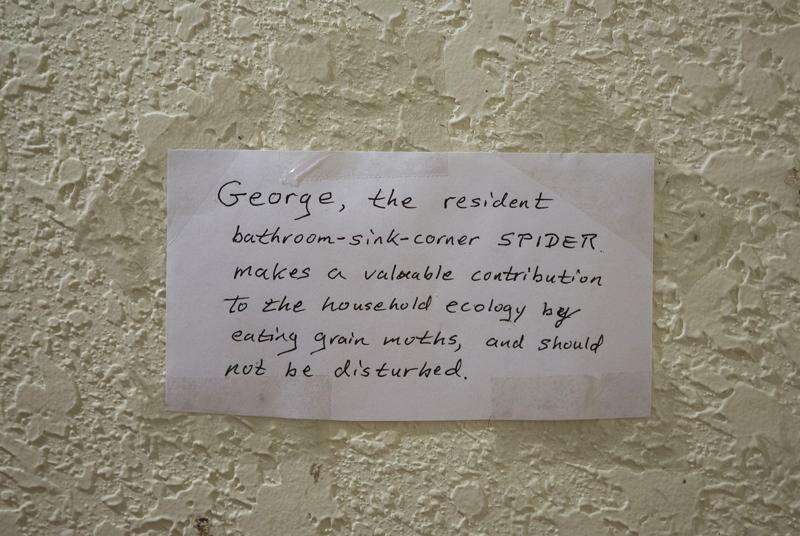 George, the resident
bathroom-sink-corner SPIDER.
makes a valuable contribution
to the household ecology by
eating grain moths, and should
not be disturbed.